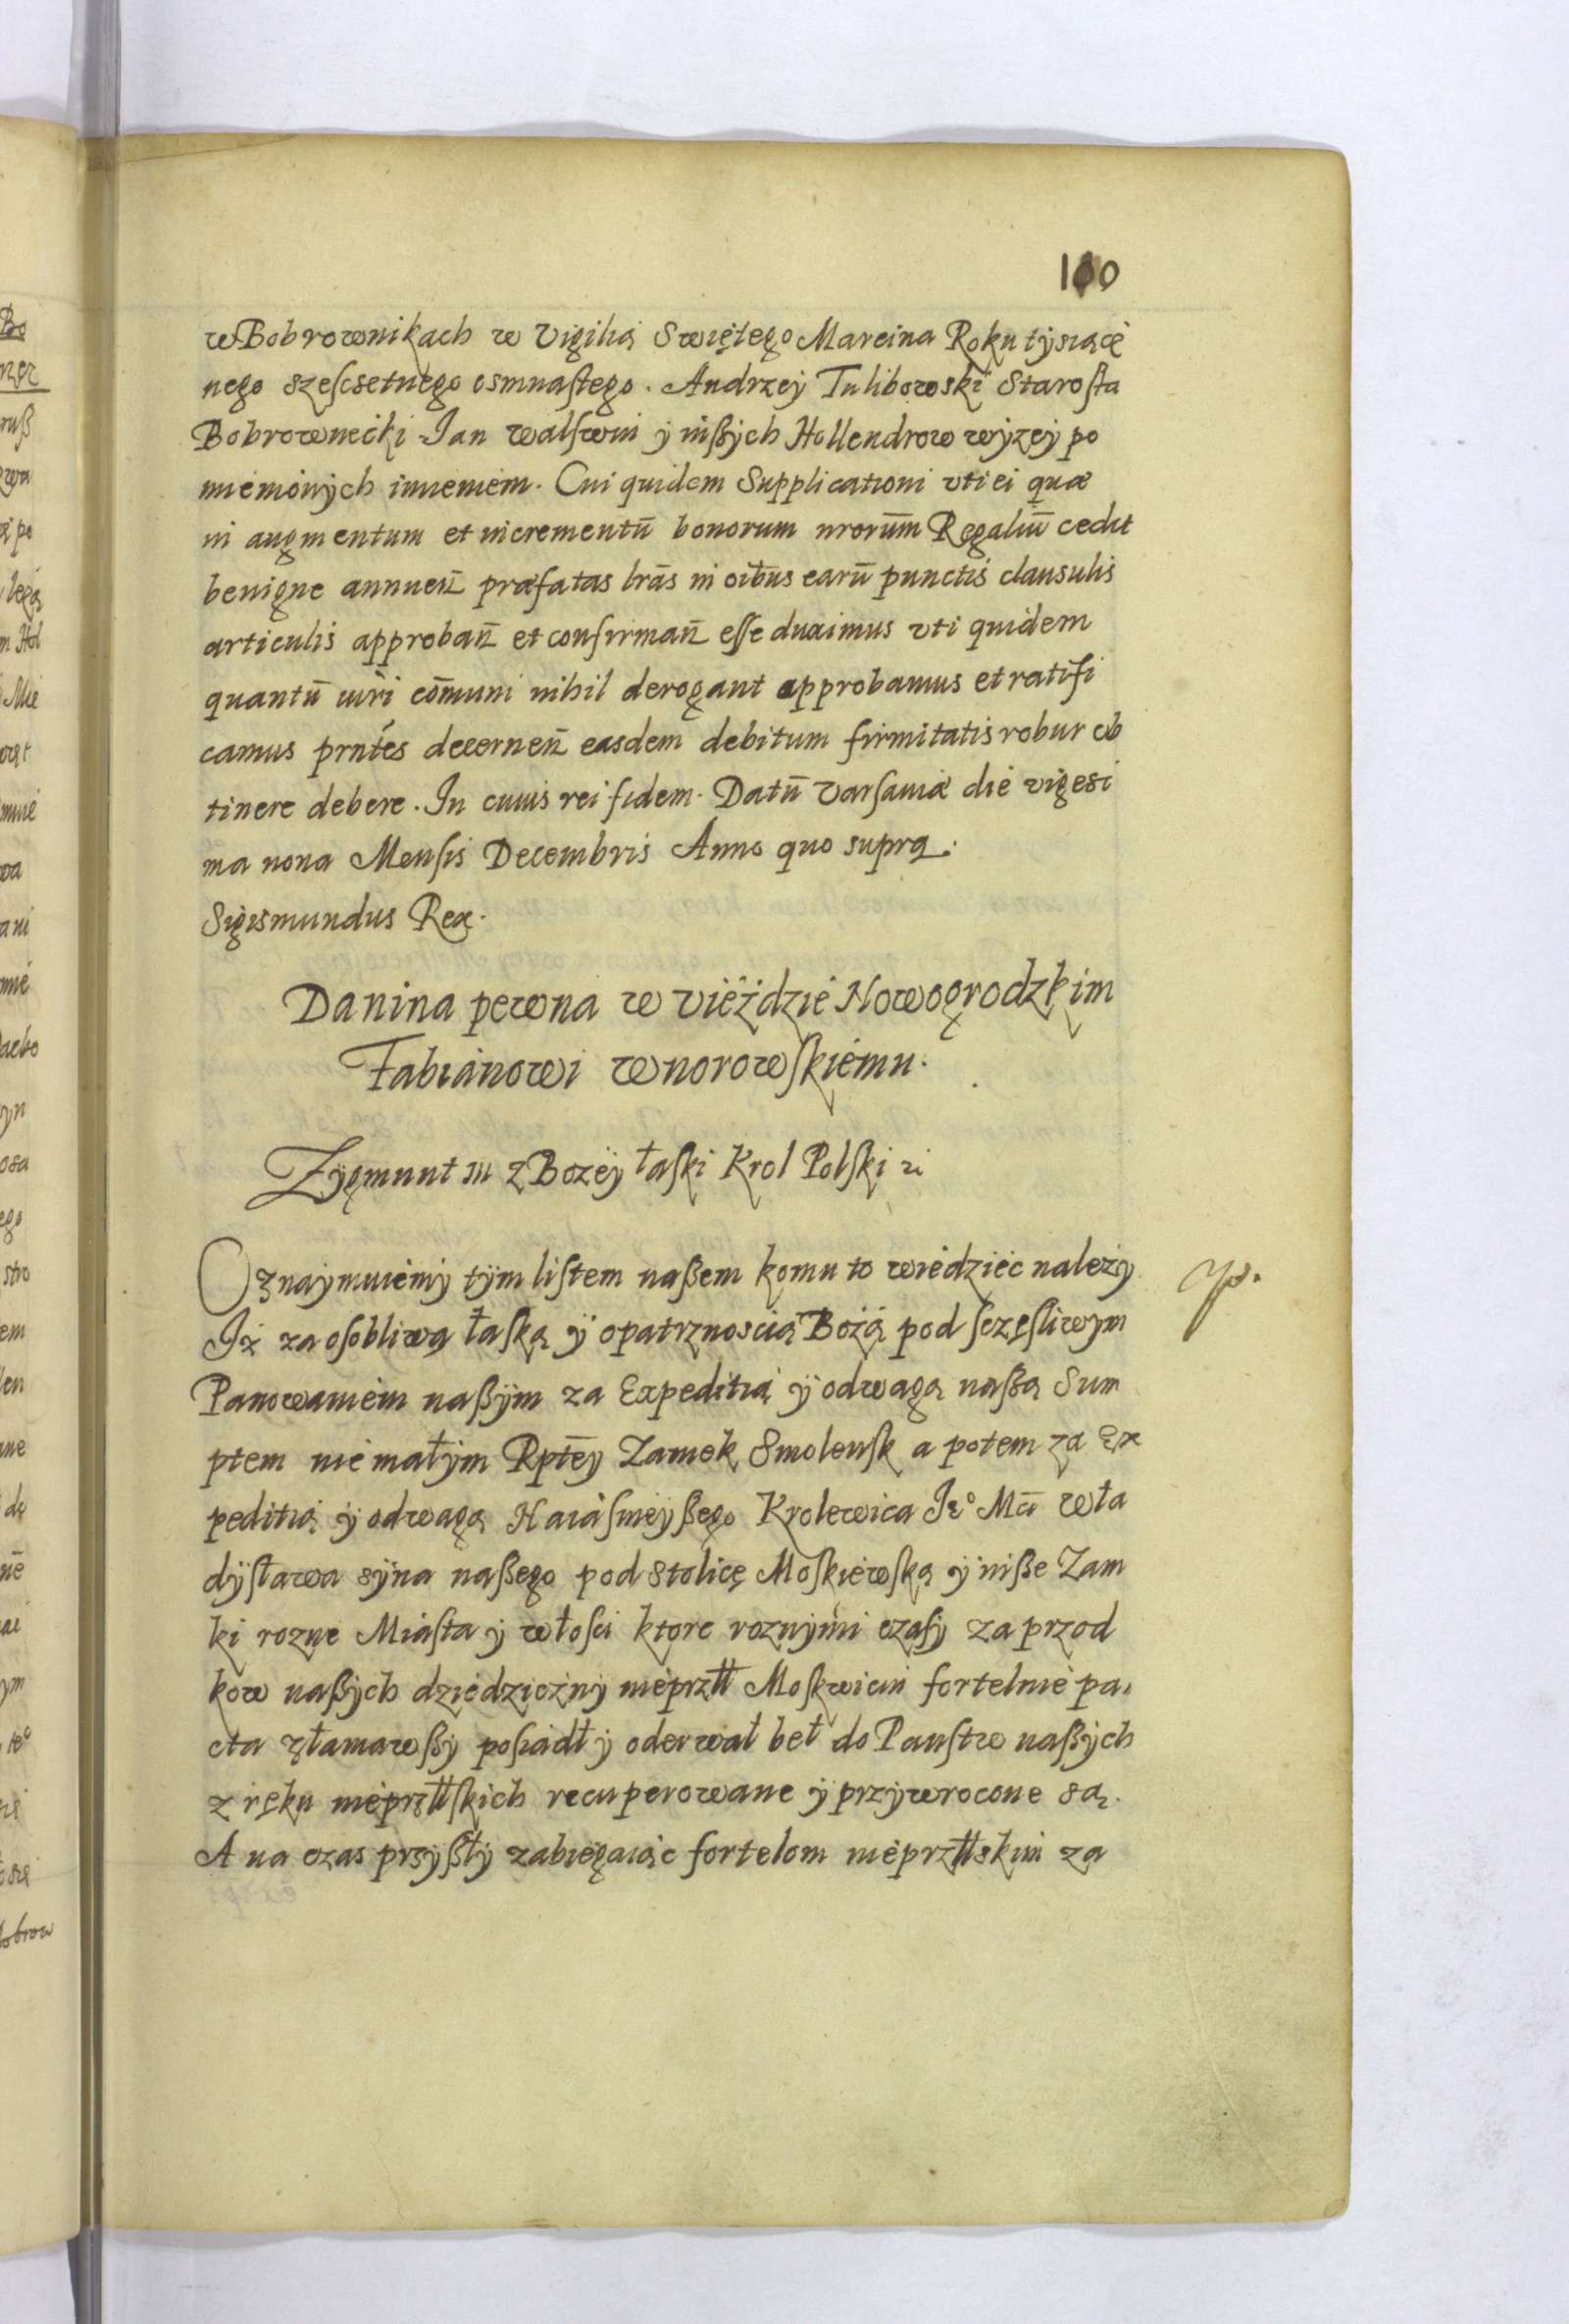 100
w Bobrownikach w Vigilią Swiętego Marcina Roku tysiącę
nego szescsetnego osmnastego. Andrzey Tuliboroski Starosta
Bobrownecki Jan walswin y inßych Hollendrow wyzey po
mienionych imieniem. Cui quidem Supplicationi vti ei quæ
in augmentum et incrementū bonorum nrorūm Regaliū cedit
benigne annuen̄ præfatas lrās in oibus earū punctis clausulis
articulis approban̄ et confirman̄ esse duximus vti quidem
quantū iuri com̄uni nihil derogant approbamus et ratifi
camus prntes decernen̄ easdem debitum firmitatis robur ob
tinere debere. In cuius rei fidem. Datū Varsaviæ die vigesi
ma nona Mensis Decembris Anno quo supra.
Sigismundus Rex.
Danina pewna w vieździe Nowogrodzkim
Fabianowi Wnorowskiemu.
Zygmunt III z Bozey łaski Krol Polski
Oznaymuiemy tym listem naßem komu to wiedzieć należy
Iż za osobliwą łaską y opatrznoscią Bożą pod sczęsliwym
Panowaniem naßym za Expeditią y odwagą naßą Sum
ptem nie małym Rptēy Zamek Smolensk a potem za Ex
peditią y odwagą Naiasnieyßego Krolewica Je° Mci Wła
dysława syna naßego pod Stolicę Moskiewską y inße Zam
ki rozne Miasta y włosci ktore roznymi czasy za przod
kow naßych dziedziczny nieprzłł Moskwicin fortelnie pa,
cta złamawßy posiadł y oderwał beł do Panstw naßych
z ręku nieprzłłskich recuperowane y przywrocone są.
A na czas przyßły zabiegaiąc fortelom nieprzłłskim za